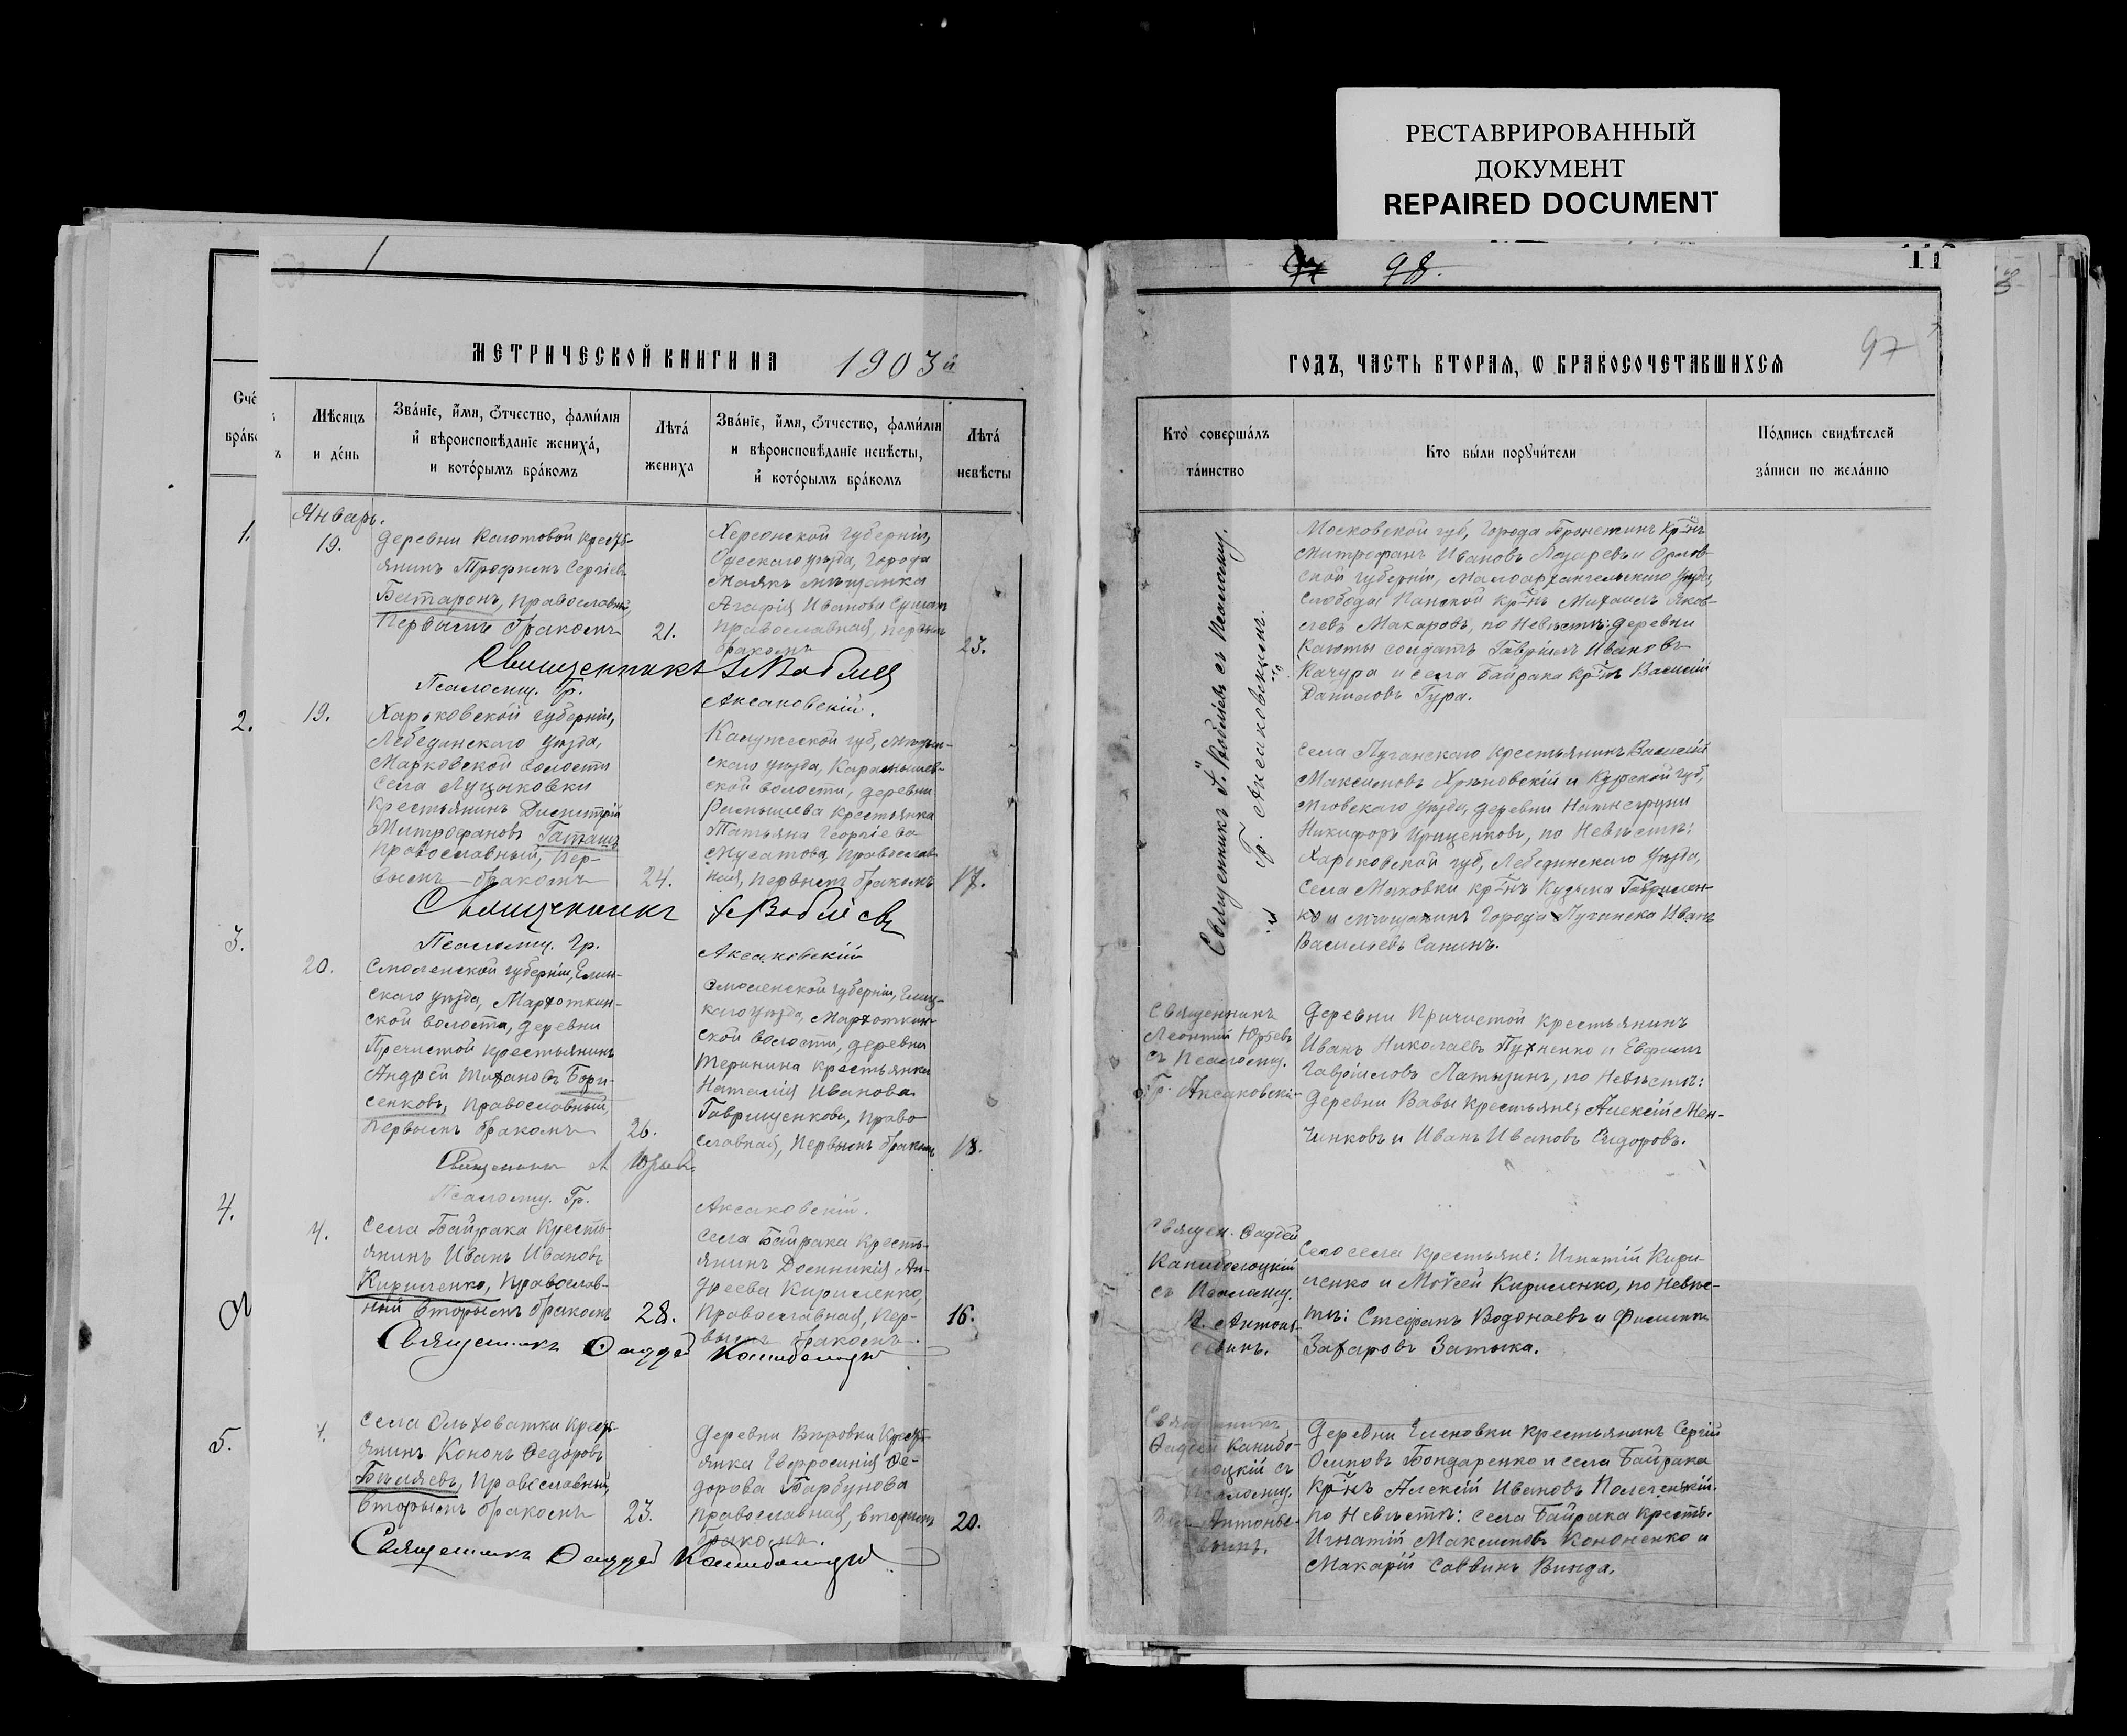 РЕСТАВРИРОВАННЫЙ
ДОКУМЕНТ
REPAIRED DOCUMENT
МЕТРИЧЕСКОЙ КНИГИ НА 1903й
Счё
бра́ко
Мѣсяцъ
и де́нь
Зва́нїе, и҆́мѧ, ѻ҆́тчество, фами́лїя
и҆ вѣроисповѣ́данїе жениха́,
и кото́рымъ бра́комъ
Лѣта́
жениха
Зва́нїе, и҆́мѧ, ѻ҆́тчество, фами́лїя
и вѣроисповѣ́данїе невѣ́сты,
и҆ кото́рымъ бра́комъ
Лѣта́
невѣ́сты
1.
Январь.
19.
Деревни Каютовой Кресть-
янинъ Трофимъ Сергіевъ
православный,
Первымъ бракомъ
21.
Херсонской Губерніи,
Одескаго уѣзда, Города
Маякъ мѣщанка
Агафія Иванова
православная, первымъ
бракомъ
23.
Священникъ
Псаломщ. Гр. Аксаковскій.
2.
19.
Харьковской Губерніи,
Лебединскаго уѣзда,
Марковской волости
села Луцыковки
Крестьянинъ Димитрій
Митрофановъ Гаташъ
православный, Пер-
вымъ бракомъ
24.
Калужской губ,
скаго уѣзда,
ской волости, деревни
крестьянка
Татьяна Георгіева
Мусатова, Православ-
ная, первымъ бракомъ
17.
Священникъ
Псаломщ. Гр. Аксаковскій
3.
20.
Смоленской губерніи, Елин-
скаго уѣзда, Мархоткин-
ской волости, деревни
Пречистой крестьянинъ
Андрей Тихановъ Бори-
сенковъ, Православный,
первымъ бракомъ
26.
Смоленской Губерніи,
уѣзда, Мархоткин-
ской волости, деревни
Теринина крестьянка
Наталія Иванова
Гаврищенкова, Право-
славная, Первымъ бракомъ
18.
Священникъ Л Юрьевъ
Псаломщ. Гр. Аксаковскій.
4.
Села Байрака Кресть-
янинъ Иванъ Ивановъ
Кириленко, Православ-
ный вторымъ бракомъ
28.
Села Байрака Кресть-
янинъ Домникія Ан-
дреева Кириленко,
Православная, Пер-
вымъ бракомъ.
16.
Священникъ Фаддей
5.
Села Ольховатки Кресть-
янинъ Кононъ Федоровъ
Бѣляевъ, Православный,
вторымъ бракомъ
23.
Деревни Вѣровки Кресть-
янка Евфросинія Фе-
дорова Барбунова
Православная, вторымъ
бракомъ.
20.
Священникъ Фаддей
98.
97
ГОДЪ, ЧАСТЬ ВТОРАѦ, Ѡ БРАКОСОЧЕТАВШИХСѦ
Кто̀ соверша́лъ
та́инство
Кто бы́ли порꙋчи́тели
По́дпись свидѣ́телей
за́писи по жела́нїю
Священникъ съ Псаломщ.
Гр. Аксаковскимъ.
Московской губ, города Бронежинъ Кр-нъ
Митрофанъ Ивановъ Лазаревъ и Орлов-
ской губерніи, Малоархангельскаго уѣзда,
слободы Панской кр-нъ Михаилъ Яков-
левъ Макаровъ, по Невѣстѣ: деревни
Каюты солдатъ Гавріилъ Ивановъ
Качура и села Байрака кр-нъ Василій
Даниловъ Гура.
Села Луганскаго крестьянинъ Василій
Максимовъ и Курской губ,
Льговскаго уѣзда, деревни
Никифоръ Гриценковъ, по Невѣстѣ:
Харьковской губ, Лебединскаго уѣзда,
села кр-нъ Кузьма Гаврилен-
ко и мѣщанинъ города Луганска Иванъ
Васильевъ Санинъ.
Священникъ
Леонтій Юрьевъ
съ Псаломщ.
Гр. Аксаковскі-
Деревни Причистой крестьянинъ
Иванъ Николаевъ Пухненко и Евфимъ
Гавріиловъ Латызинъ, по Невѣстѣ:
Деревни Вавы крестьяне: Алексій Мен-
чинковъ и Иванъ Ивановъ Сидоровъ.
Священ. Фаддей
Канибалоцкій
съ Псаломщ.
В. Антонь-
евымъ.
Сего села крестьяне: Игнатій Кири-
ленко и Моѵсей Кириленко, по Невѣс-
тѣ: Стефанъ Водонаевъ и Филиппъ
Захаровъ Затыка.
Священникъ
Фаддей Канибо-
лоцкій съ
Псаломщ.
Антонье-
вымъ.
Деревни Еленовки крестьянинъ Сергій
Осиповъ Бондаренко и села Байрака
Кр-нъ Алексій Ивановъ
по Невѣстѣ: села Байрака Кресть.
Игнатій Максимовъ Кононенко и
Макарій Саввинъ Винда.